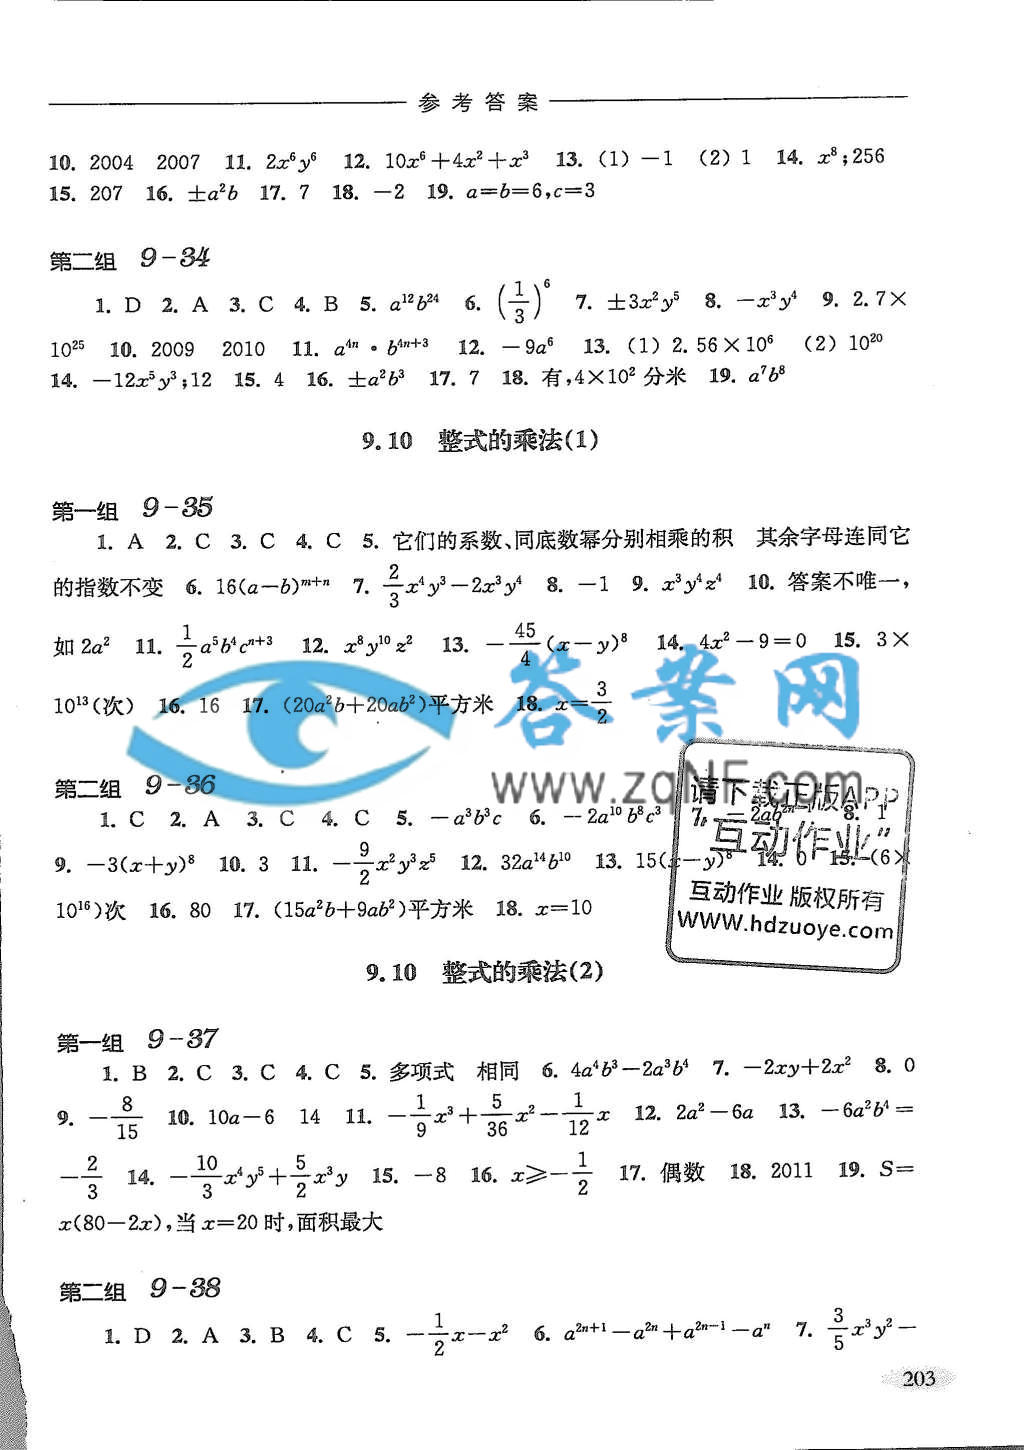 参考答案
10. 2004 2007 11. 2x⁶y⁶ 12. 10x⁶+4x²+x³ 13. (1) −1 (2) 1 14. x⁸;256
15. 207 16. ±a²b 17. 7 18. −2 19. a=b=6,c=3
第二组 9−34
1. D 2. A 3. C 4. B 5. a¹²b²⁴ 6. (1/3)⁶ 7. ±3x²y⁵ 8. −x³y⁴ 9. 2.7×
10²⁵ 10. 2009 2010 11. a⁴ⁿ·b⁴ⁿ⁺³ 12. −9a⁶ 13. (1) 2.56×10⁶ (2) 10²⁰
14. −12x⁵y³;12 15. 4 16. ±a²b³ 17. 7 18. 有,4×10²分米 19. a⁷b⁸
9.10 整式的乘法(1)
第一组 9−35
1. A 2. C 3. C 4. C 5. 它们的系数、同底数幂分别相乘的积 其余字母连同它
的指数不变 6. 16(a−b)ᵐ⁺ⁿ 7. 2/3x⁴y³−2x³y⁴ 8. −1 9. x³y⁴z⁴ 10. 答案不唯一,
如2a² 11. 1/2a⁵b⁴cⁿ⁺³ 12. x⁸y¹⁰z² 13. −45/4(x−y)⁸ 14. 4x²−9=0 15. 3×
10¹³(次) 16. 16 17. (20a²b+20ab²)平方米 18. x=3/2
答案网
www.zqNF.com
第二组 9−36
1. C 2. A 3. C 4. C 5. −a³b³c 6. −2a¹⁰b⁸c³ 7. 8. 1
9. −3(x+y)⁸ 10. 3 11. −9/2x²y³z⁵ 12. 32a¹⁴b¹⁰ 13. 15(x−y)⁸ 14. 0 15. (6×
10¹⁶)次 16. 80 17. (15a²b+9ab²)平方米 18. x=10
请下载正版APP
互动作业”
互动作业 版权所有
www.hdzuoye.com
9.10 整式的乘法(2)
第一组 9−37
1. B 2. C 3. C 4. C 5. 多项式 相同 6. 4a⁴b³−2a³b⁴ 7. −2xy+2x² 8. 0
9. −8/15 10. 10a−6 14 11. −1/9x³+5/36x²−1/12x 12. 2a²−6a 13. −6a²b⁴=
−2/3 14. −10/3x⁴y⁵+5/2x³y 15. −8 16. x⩾−1/2 17. 偶数 18. 2011 19. S=
x(80−2x),当x=20时,面积最大
第二组 9−38
1. D 2. A 3. B 4. C 5. −1/2x−x² 6. a²ⁿ⁺¹−a²ⁿ+a²ⁿ⁻¹−aⁿ 7. 3/5x³y²−
203